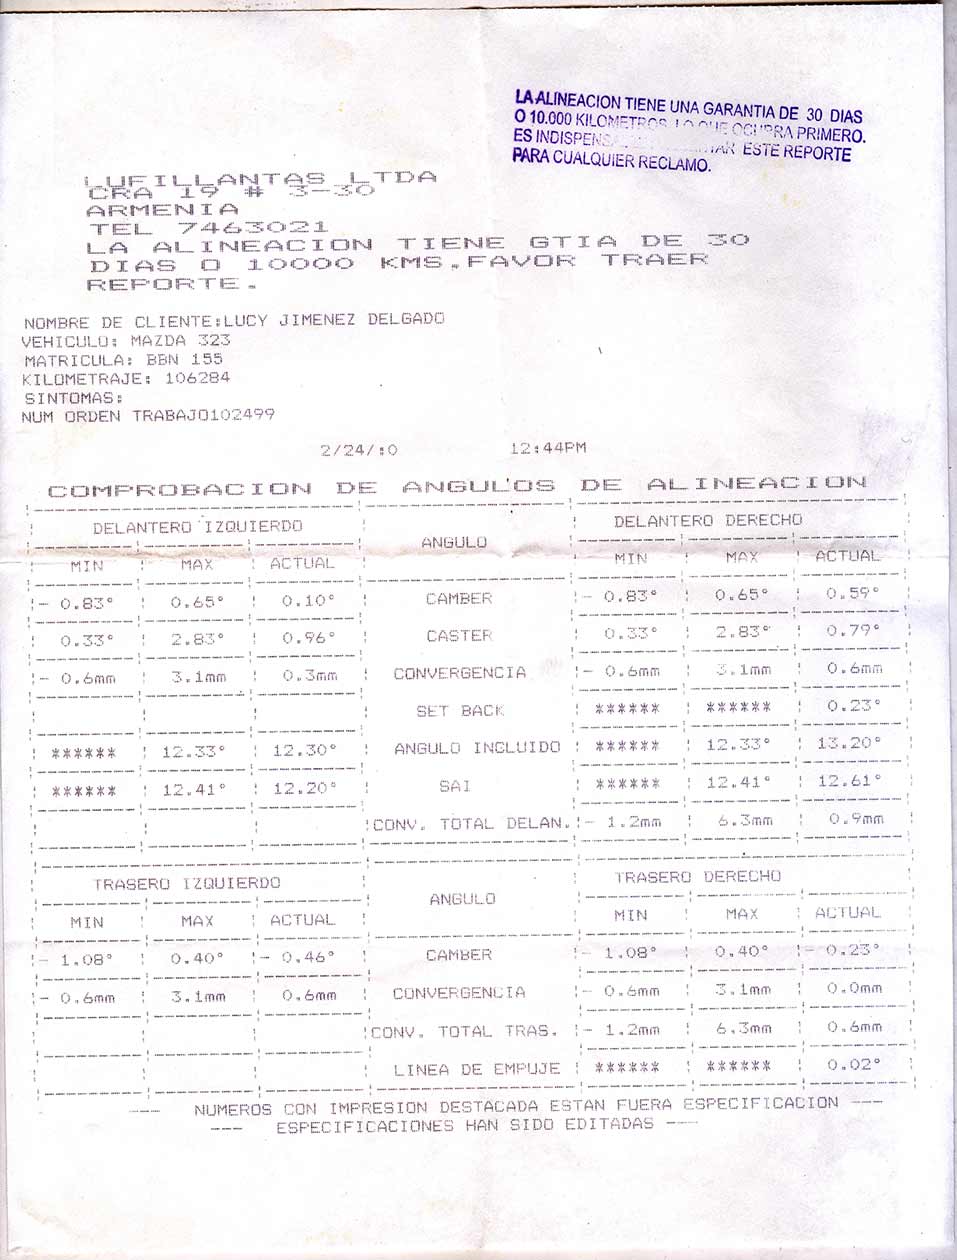 LA ALINEACION TIENE UNA GARANTIA DE 30 DIAS
O 10.000 KILOMETROS, LO QUE OCURRA PRIMERO.
ES ESTE REPORTE
PARA CUALQUIER RECLAMO.
LUFILLANTAS LTDA
CRA 19 # 3-30
ARMENIA
TEL 7463021
LA ALINEACION TIENE GTIA DE 30
DIAS O 10000 KMS.FAVOR TRAER
REPORTE.
NOMBRE DE CLIENTE:LUCY JIMENEZ DELGADO
VEHICULO: MAZDA 323
MATRICULA: BBN 155
KILOMETRAJE: 106284
SINTOMAS:
NUM ORDEN TRABAJO102499
2/24/:0 12:44PM
COMPROBACION DE ANGULOS DE ALINEACION
DELANTERO IZQUIERDO ANGULO DELANTERO DERECHO
MIN MAX ACTUAL MIN MAX ACTUAL
- 0.83° 0.65° 0.10° CAMBER - 0.83° 0.65° 0.59°
0.33° 2.83° 0.96° CASTER 0.33° 2.83° 0.79°
- 0.6mm 3.1mm 0.3mm CONVERGENCIA - 0.6mm 3.1mm 0.6mm
SET BACK ****** ****** 0.23°
****** 12.33° 12.30° ANGULO INCLUIDO ****** 12.33° 13.20°
****** 12.41° 12.20° SAI ****** 12.41° 12.61°
CONV. TOTAL DELAN. - 1.2mm 6.3mm 0.9mm
TRASERO IZQUIERDO ANGULO TRASERO DERECHO
MIN MAX ACTUAL MIN MAX ACTUAL
- 1.08° 0.40° - 0.46° CAMBER - 1.08° 0.40° - 0.23°
- 0.6mm 3.1mm 0.6mm CONVERGENCIA - 0.6mm 3.1mm 0.0mm
CONV. TOTAL TRAS. - 1.2mm 6.3mm 0.6mm
LINEA DE EMPUJE ****** ****** 0.02°
--- NUMEROS CON IMPRESION DESTACADA ESTAN FUERA ESPECIFICACION ---
--- ESPECIFICACIONES HAN SIDO EDITADAS ---